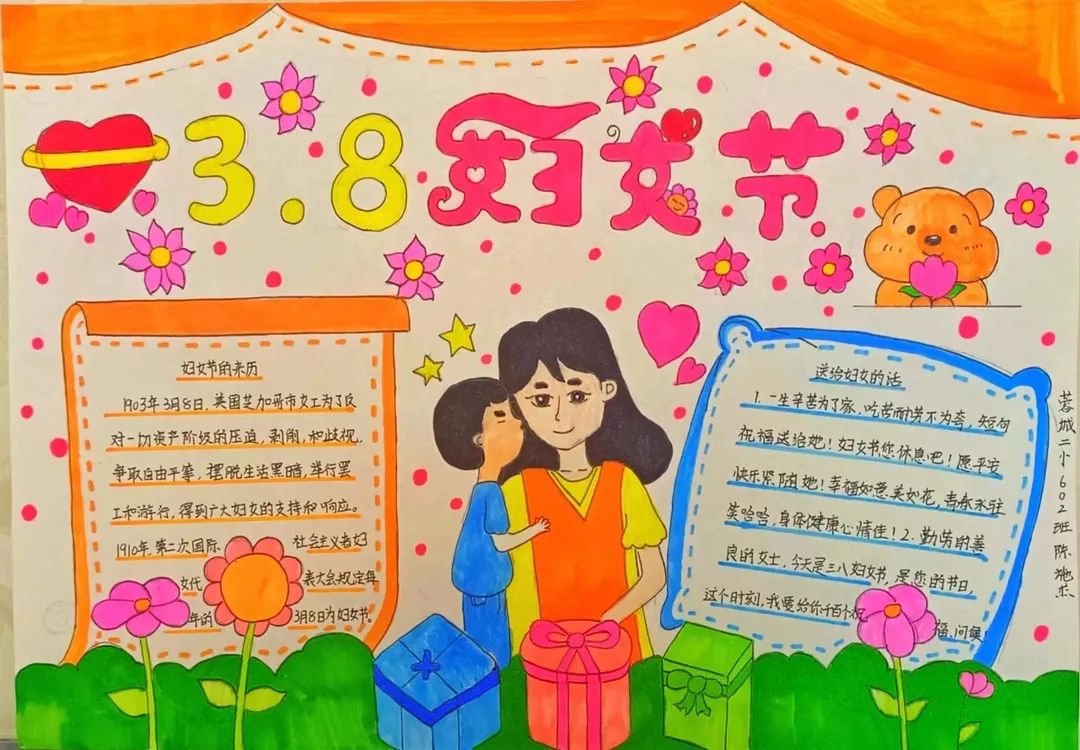 3.8妇女节
妇女节的来历
1903年3月8日,美国芝加哥市女工为了反
对一切资产阶级的压迫,剥削,和歧视,
争取自由平等,摆脱生活黑暗,举行罢
工和游行,得到广大妇女的支持和响应。
1910年,第二次国际 社会主义者妇
女代 表大会规定每
年的 3月8日为妇女节。
送给妇女的话
1. 一生辛苦为了家,吃苦耐劳不为夸,短句
祝福送给她!妇女节您休息吧!愿平安
快乐紧随她!幸福如意美如花,青春永驻
笑哈哈,身体健康心情佳!2.勤劳的善
良的女士,今天是三八妇女节,是您的节日,
这个时刻,我要给你千百个祝
福,问候!
蓉城二小602班陈